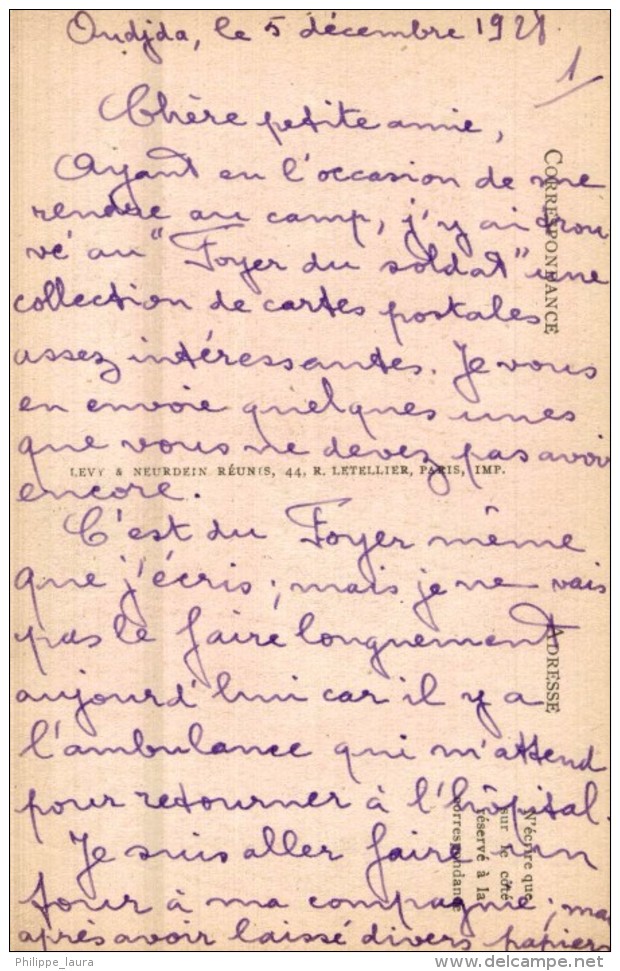 Oudjda, le 5 décembre 1928.
1
Chère petite amie,
Ayant eu l'occasion de me
rendre au camp, j'y ai trou
vé au "Foyer du soldat" une
collection de cartes postales
assez intéressantes. Je vous
en envoie quelques unes
que vous ne devez pas avoir
encore.
C'est du Foyer même
que j'écris ; mais je ne vais
pas le faire longuement
aujourd'hui car il y a
l'ambulance qui m'attend
pour retourner à l'hôpital.
Je suis aller faire un
tour à ma compagnie ; mai
après avoir laissé divers papiers
LEVY & NEURDEIN RÉUNIS, 44, R. LETELLIER, PARIS, IMP.
CORRESPONDANCE
ADRESSE
N'écrire que
sur le côté
réservé à la
correspondance
Philippe_laura
delcampe.net